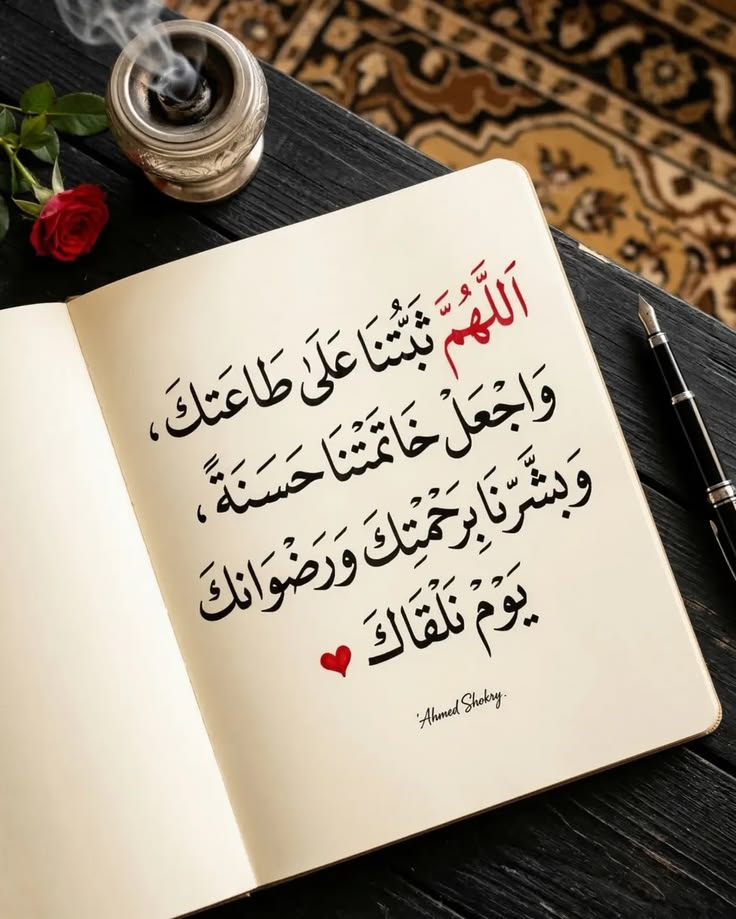 اَللَّهُمَّ ثَبِّتْنَا عَلَىٰ طَاعَتِكَ،
وَاجْعَلْ خَاتِمَتَنَا حَسَنَةً،
وَبَشِّرْنَا بِرَحْمَتِكَ وَرِضْوَانِكَ
يَوْمَ نَلْقَاكَ
'Ahmed Shokry.